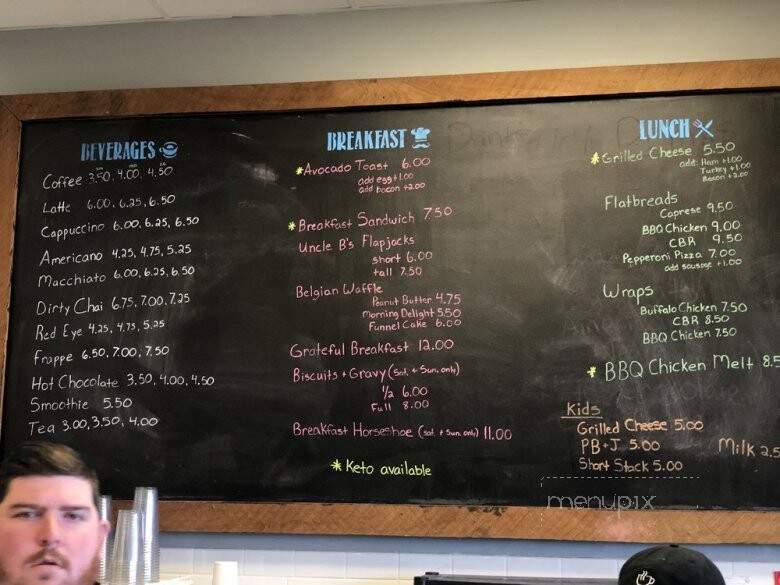 BEVERAGES
Coffee 3.50, 4.00, 4.50
Latte 6.00, 6.25, 6.50
Cappuccino 6.00, 6.25, 6.50
Americano 4.25, 4.75, 5.25
Macchiato 6.00, 6.25, 6.50
Dirty Chai 6.75, 7.00, 7.25
Red Eye 4.25, 4.75, 5.25
Frappe 6.50, 7.00, 7.50
Hot Chocolate 3.50, 4.00, 4.50
Smoothie 5.50
Tea 3.00, 3.50, 4.00
BREAKFAST
*Avocado Toast 6.00
add egg +1.00
add bacon +2.00
*Breakfast Sandwich 7.50
Uncle B's Flapjacks
short 6.00
tall 7.50
Belgian Waffle
Peanut Butter 4.75
Morning Delight 5.50
Funnel Cake 6.00
Grateful Breakfast 12.00
Biscuits + Gravy (Sat. + Sun. only)
1/2 6.00
Full 8.00
Breakfast Horseshoe (Sat. + Sun. only) 11.00
* Keto available
LUNCH
*Grilled Cheese 5.50
add: Ham +1.00
Turkey +1.00
Bacon +2.00
Flatbreads
Caprese 9.50
BBQ Chicken 9.00
CBR 9.50
Pepperoni Pizza 7.00
add sausage +1.00
Wraps
Buffalo Chicken 7.50
CBR 8.50
BBQ Chicken 7.50
* BBQ Chicken Melt 8.5
Kids
Grilled Cheese 5.00
PB+J 5.00
Milk 2.5
Short Stack 5.00
menupix